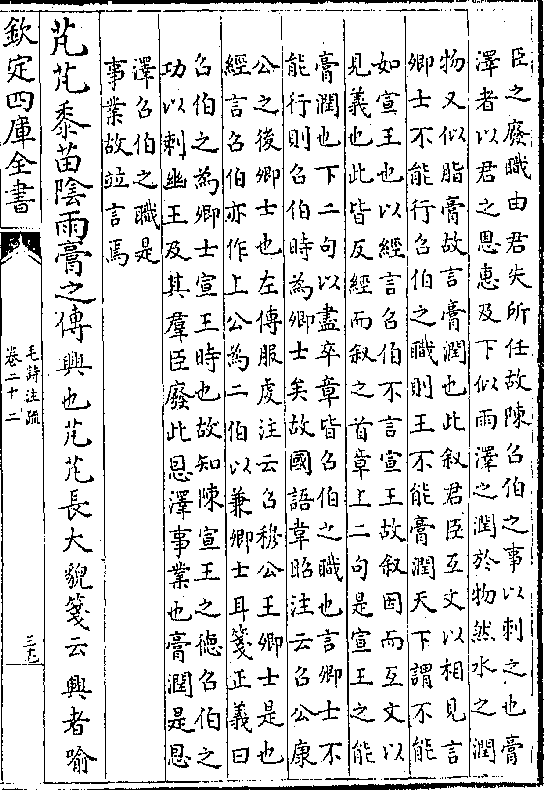 臣之廢職由君失所任故陳召伯之事以刺之也膏
澤者以君之恩惠及下似雨澤之潤於物然水之潤
物又似脂膏故言膏潤也此叙君臣互文以相見言
卿士不能行召伯之職則王不能膏潤天下謂不能
如宣王也以經言召伯不言宣王故叙因而互文以
見義也此皆反經而叙之首章上二句是宣王之能
膏潤也下二句以盡卒章皆召伯之職也言卿士不
能行則召伯時為卿士矣故國語韋昭注云召公康
公之後卿士也左傳服虔注云召穆公王卿士是也
經言召伯亦作上公為二伯以兼卿士耳箋正義曰
召伯之為卿士宣王時也故知陳宣王之德召伯之
功以刺幽王及其羣臣廢此恩澤事業也膏潤是恩
澤召伯之職是
事業故竝言焉
芃芃黍苗陰雨膏之傳興也芃芃長大貌箋云興者喻
欽定四庫全書
毛詩注疏
卷二十二